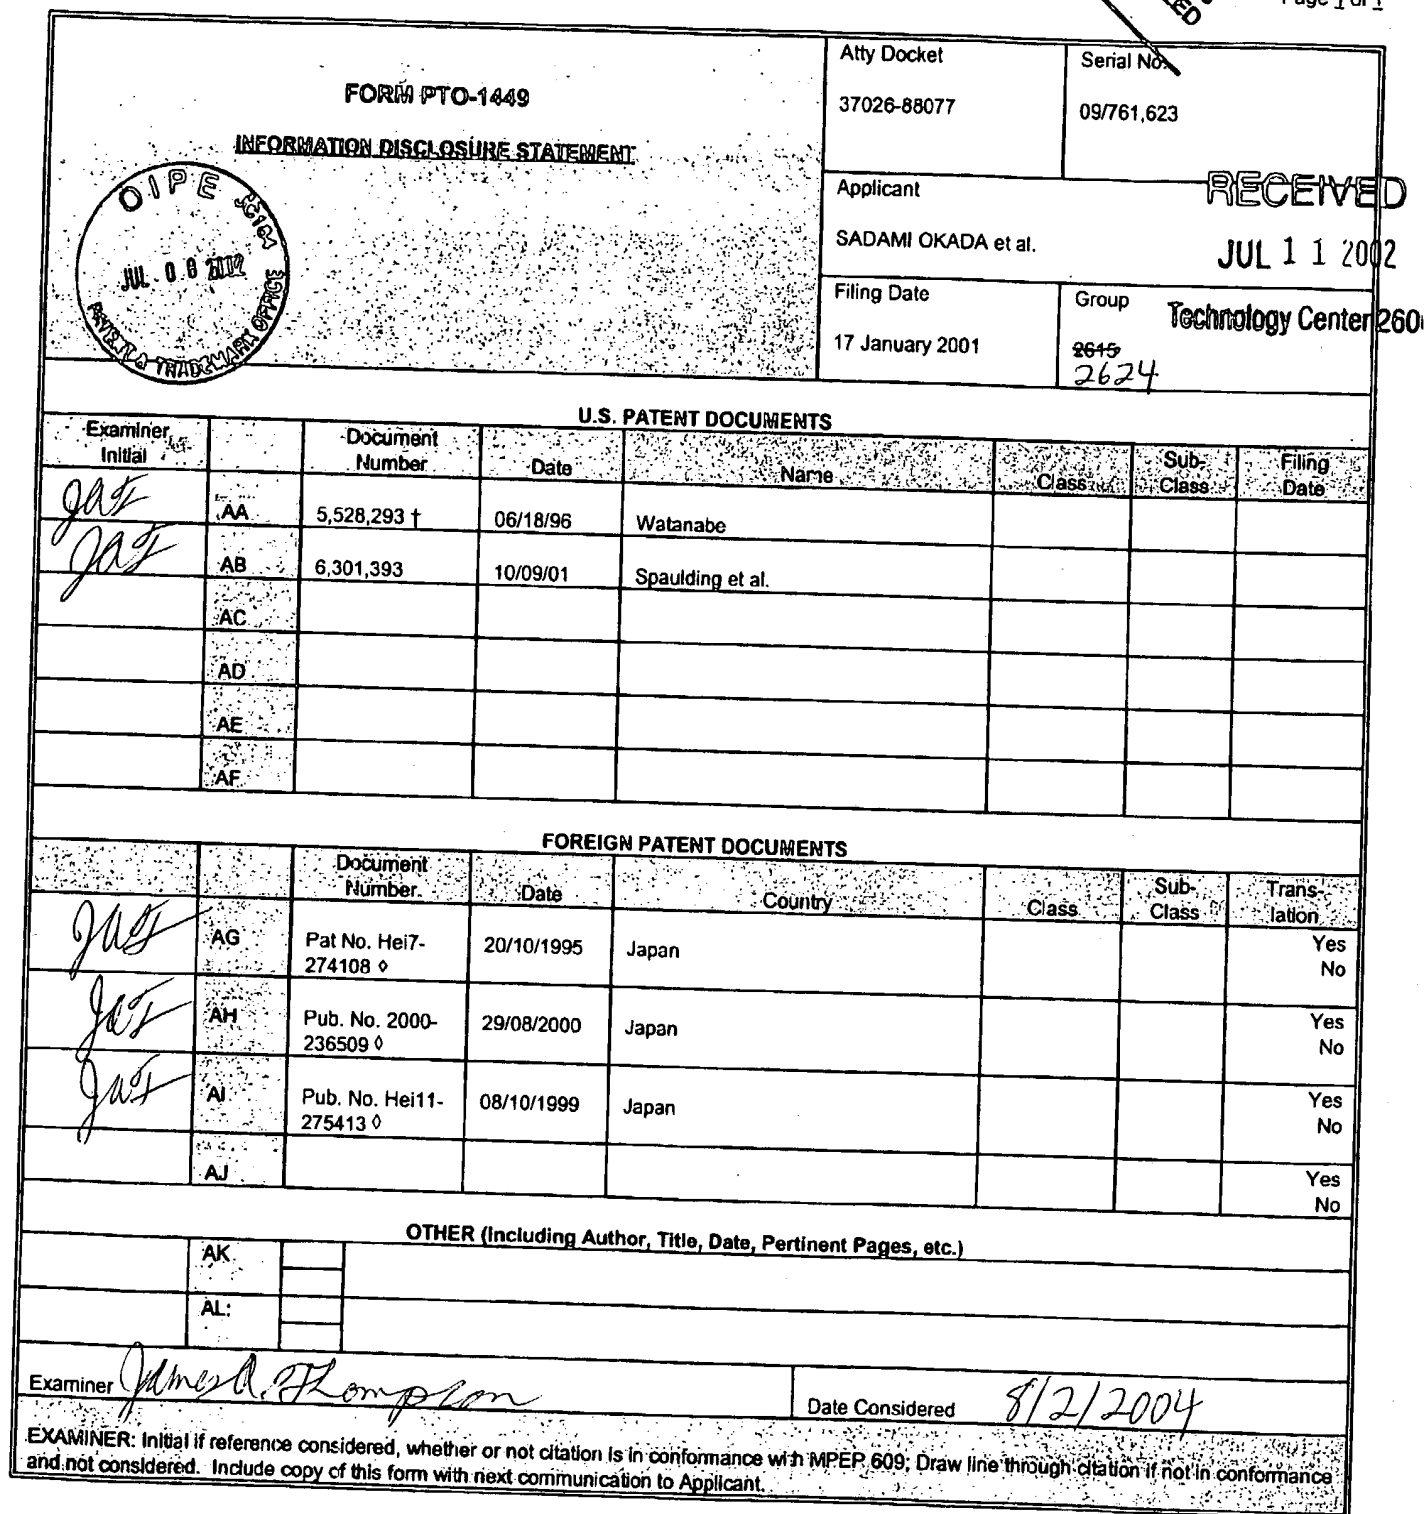 Page 1 of 1
Atty Docket
37026-88077
Serial No.
09/761,623
FORM PTO-1449
INFORMATION DISCLOSURE STATEMENT
OIPE JC164
JUL 08 2002
PATENT & TRADEMARK OFFICE
Applicant
SADAMI OKADA et al.
RECEIVED
JUL 11 2002
Technology Center 260
Filing Date
17 January 2001
Group
2615
2624
U.S. PATENT DOCUMENTS
Examiner Initial Document Number Date Name Class Sub-Class Filing Date
JAT AA 5,528,293 † 06/18/96 Watanabe
JAT AB 6,301,393 10/09/01 Spaulding et al.
AC
AD
AE
AF
FOREIGN PATENT DOCUMENTS
Document Number Date Country Class Sub-Class Trans-lation
JAT AG Pat No. Hei7- 20/10/1995 Japan Yes
274108 ◊ No
JAT AH Pub. No. 2000- 29/08/2000 Japan Yes
236509 ◊ No
JAT AI Pub. No. Hei11- 08/10/1999 Japan Yes
275413 ◊ No
AJ Yes
No
OTHER (Including Author, Title, Date, Pertinent Pages, etc.)
AK
AL:
Examiner James A. Thompson
Date Considered 8/2/2004
EXAMINER: Initial if reference considered, whether or not citation is in conformance with MPEP 609; Draw line through citation if not in conformance
and not considered. Include copy of this form with next communication to Applicant.